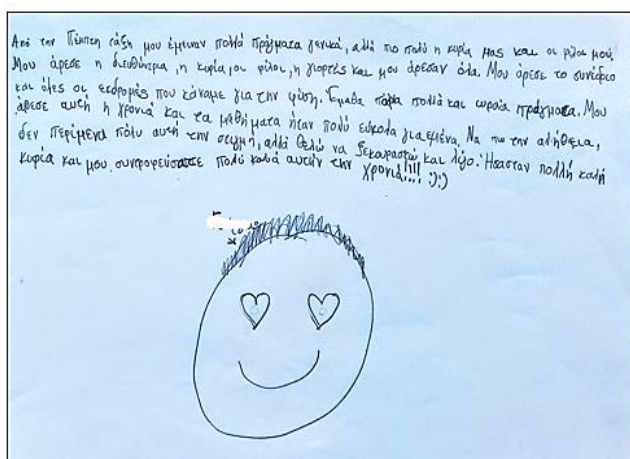 Από την Πέμπτη τάξη μου έμειναν πολλά πράγματα γενικά, αλλά πιο πολύ η κυρία μας και οι φίλοι μου.
Μου άρεσε η διευθύντρια, η κυρία, οι φίλοι, η γιορτές και μου άρεσαν όλα. Μου άρεσε το συνέφιο
και όλες οι εκδρομές που κάναμε για την φύση. Έμαθα πάρα πολλά και ωραία πράγματα. Μου
άρεσε αυτή η χρονιά και τα μαθήματα ήταν πολύ εύκολα για εμένα. Να πω την αλήθεια,
δεν περίμενα πολύ αυτή την στιγμή, αλλά θέλω να ξεκουραστώ και λίγο. Ήσασταν πολλή καλή
κυρία και μου συντροφεύσατε πολύ καλά αυτήν την χρονιά!!!! :):)